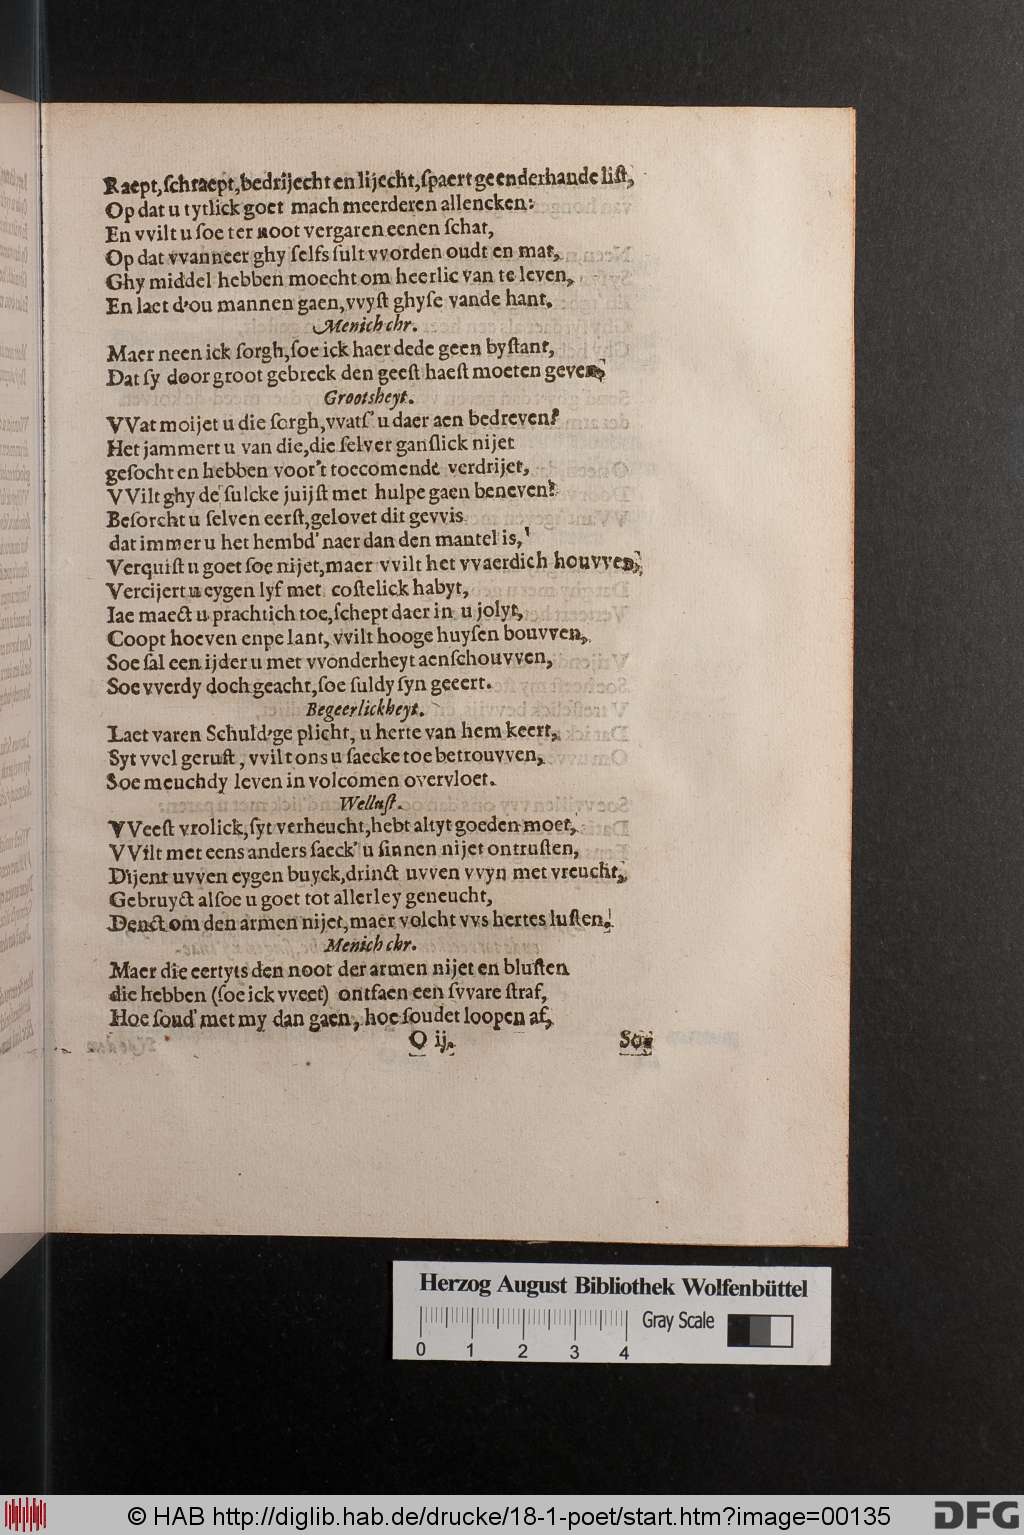 Raept,ſchraept,bedrijecht en lijecht,ſpaert geenderhande liſt,
Op dat u tytlick goet mach meerderen allencken:
En vvilt u ſoe ter noot vergaren eenen ſchat,
Op dat vvanneer ghy ſelfs ſult vvorden oudt en mat,
Ghy middel hebben moecht om heerlic van te leven,
En laet d'ou mannen gaen,vvyſt ghyſe vande hant.
Menich chr.
Maer neen ick ſorgh,ſoe ick haer dede geen byſtant,
Dat ſy door groot gebreck den geeſt haeſt moeten geven,
Grootsheyt.
VVat moijet u die ſorgh,vvatſ' u daer aen bedreven?
Het jammert u van die,die ſelver ganſlick nijet
geſocht en hebben voor't toecomende verdrijet,
VVilt ghy de ſulcke juijſt met hulpe gaen beneven?
Beſorcht u ſelven eerſt,gelovet dit gevvis
dat immer u het hembd' naer dan den mantel is,
Verquiſt u goet ſoe nijet,maer vvilt het vvaerdich houvven,
Vercijert u eygen lyf met coſtelick habyt,
Iae maect u prachtich toe,ſchept daer in u jolyt,
Coopt hoeven enpe lant, vvilt hooge huyſen bouvven,
Soe ſal een ijder u met vvonderheyt aenſchouvven,
Soe vverdy doch geacht,ſoe ſuldy ſyn geeert.
Begeerlickheyt.
Laet varen Schuld'ge plicht, u herte van hem keert,
Syt vvel geruſt, vvilt ons u ſaecke toe betrouvven,
Soe meuchdy leven in volcomen overvloet.
Welluſt.
VVeeſt vrolick,ſyt verheucht,hebt altyt goeden moet,
VVilt met eens anders ſaeck' u ſinnen nijet ontruſten,
Dijent uvven eygen buyck,drinct uvven vvyn met vreucht,
Gebruyct alſoe u goet tot allerley geneucht,
Denct om den armen nijet,maer volcht vvs hertes luſten,
Menich chr.
Maer die eertyts den noot der armen nijet en bluſten
die hebben (ſoe ick vveet) ontfaen een ſvvare ſtraf,
Hoe ſoud' met my dan gaen, hoe ſoudet loopen af,
O ij. Soe
Herzog August Bibliothek Wolfenbüttel
0 1 2 3 4 Gray Scale
© HAB http://diglib.hab.de/drucke/18-1-poet/start.htm?image=00135 DFG